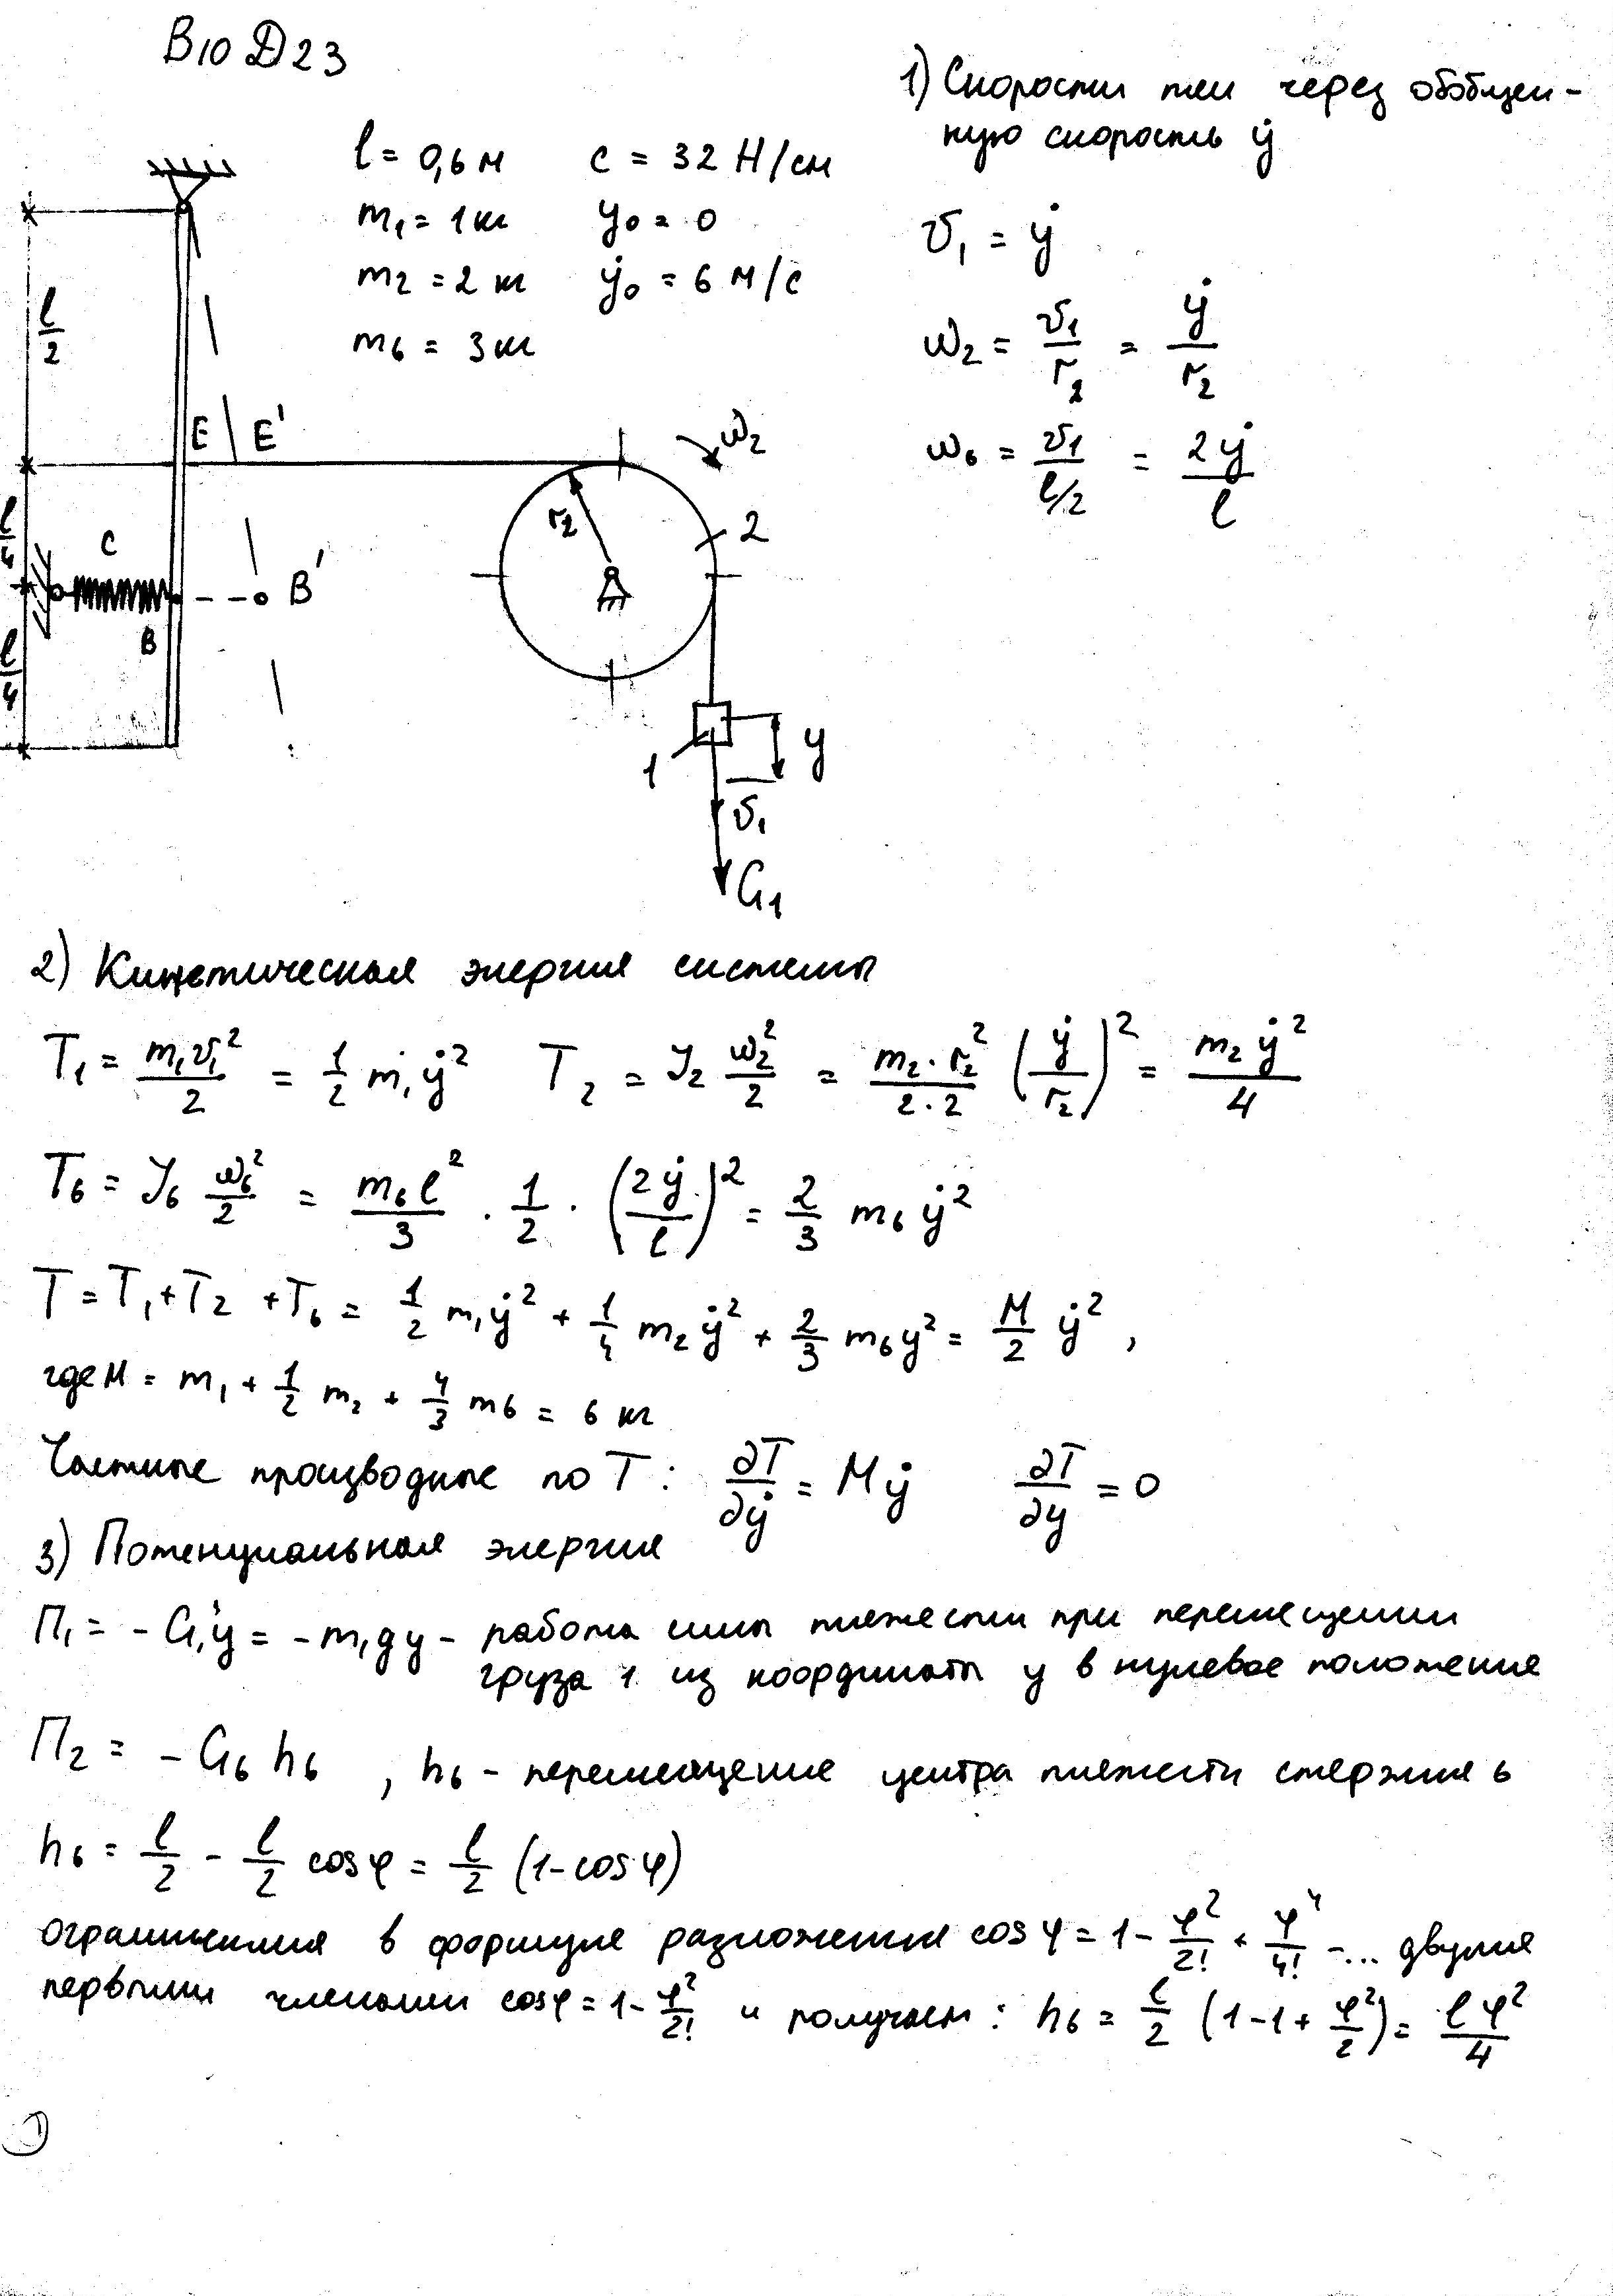 В10 Д23
1) Скорости тел через обобщен-
ную скорость ẏ
l = 0,6 м    c = 32 Н/см
m₁ = 1 кг    y₀ = 0
m₂ = 2 кг    ẏ₀ = 6 м/с
m₆ = 3 кг
v₁ = ẏ
ω₂ = v₁/r₂ = ẏ/r₂
ω₆ = v₁/(l/2) = 2ẏ/l
l/2
E E'
ω₂
r₂
2
l/4
C
B'
B
l/4
1
y
v₁
G₁
2) Кинетическая энергия системы
T₁ = m₁v₁²/2 = 1/2 m₁ẏ²    T₂ = J₂ ω₂²/2 = m₂·r₂²/(2·2) (ẏ/r₂)² = m₂ẏ²/4
T₆ = J₆ ω₆²/2 = m₆l²/3 · 1/2 · (2ẏ/l)² = 2/3 m₆ẏ²
T = T₁ + T₂ + T₆ = 1/2 m₁ẏ² + 1/4 m₂ẏ² + 2/3 m₆y² = M/2 ẏ² ,
где M = m₁ + 1/2 m₂ + 4/3 m₆ = 6 кг
Частные производные по T : ∂T/∂ẏ = Mẏ    ∂T/∂y = 0
3) Потенциальная энергия
П₁ = - G₁y = - m₁gy - работа силы тяжести при перемещении
груза 1 из координаты y в нулевое положение
П₂ = - G₆h₆ , h₆ - перемещение центра тяжести стержня 6
h₆ = l/2 - l/2 cosφ = l/2 (1-cosφ)
ограничимся в формуле разложения cosφ = 1 - φ²/2! + φ⁴/4! - ... двумя
первыми членами cosφ = 1 - φ²/2! и получаем : h₆ = l/2 (1-1+ φ²/2) = lφ²/4
1